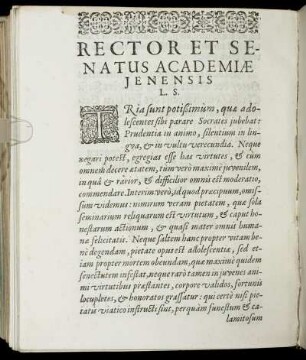 RECTOR ET SE-
NATUS ACADEMIÆ
JENENSIS
L. S.
TRia sunt potissimùm, quæ ado-
lescentes sibi parare Socrates jubebat:
Prudentia in animo, silentium in lin-
gva, & in vultu verecundia. Neque
negari potest, egregias esse has virtutes, & cùm
omnem decere ætatem, tùm verò maximè juvenilem,
in quâ & rarior, & difficilior omnis est moderatio,
commendare. Interim verò, id quod præcipuum, omis-
sum videmus: nimirum veram pietatem, quæ sola
seminarium reliquarum est virtutum, & caput ho-
nestarum actionum, & quasi mater omnis huma-
na felicitatis. Neque saltem hanc propter vitam be-
nè degendam, pietate opus est adolescentia, sed et-
iam propter mortem obeundam, quæ maximè quidem
senectutem infestat, neque rarò tamen in juvenes ani-
mi virtutibus præstantes, corpore validos, fortunis
locupletes, & honoratos grassatur: qui certè nisi pie-
tatis viatico instructi sint, perquàm funestum & ca-
lamitosum